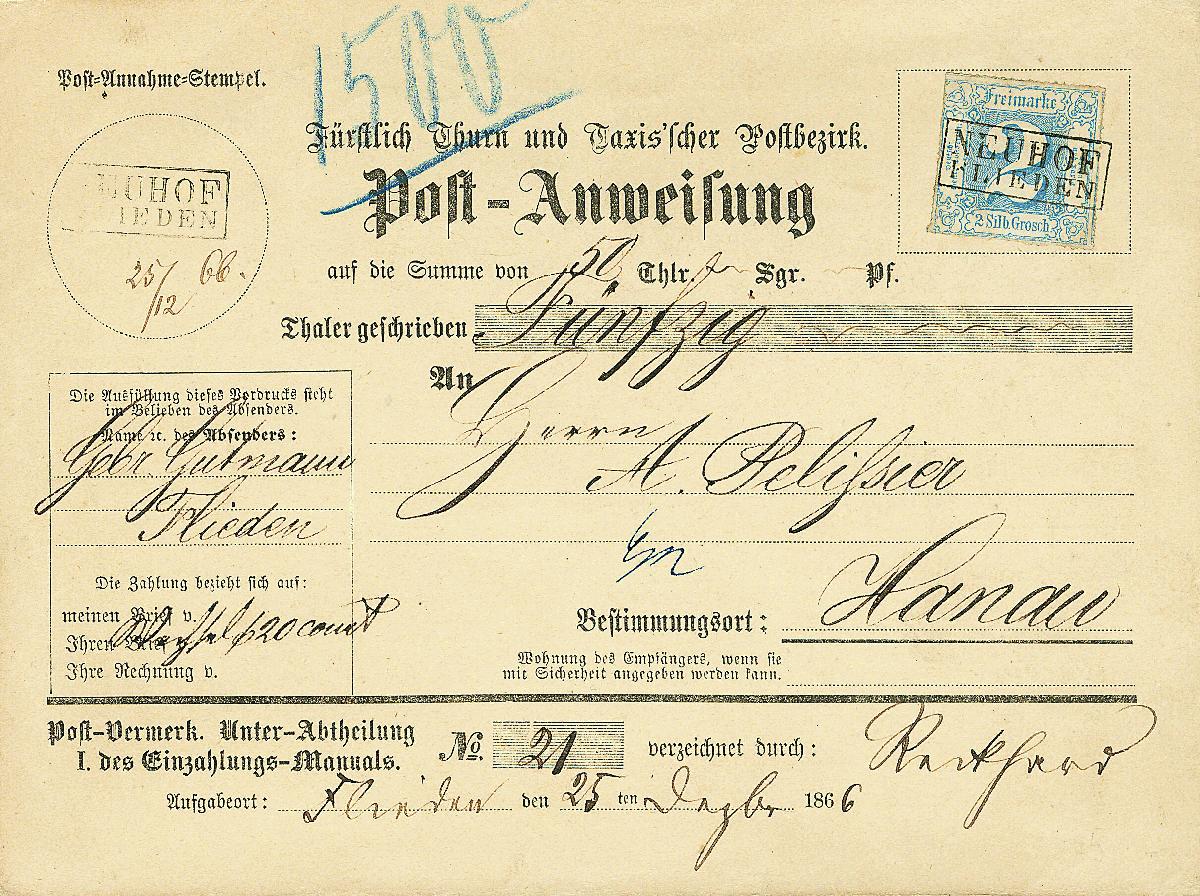 1500
Post-Annahme-Stempel.
Fürstlich Thurn und Taxis'scher Postbezirk.
Post-Anweisung
Freimarke
2
2 Silb. Grosch
NEUHOF
FLIEDEN
EUHOF
IEDEN
25/12 66.
auf die Summe von 50 Thlr. Sgr. Pf.
Thaler geschrieben Fünfzig
An Herrn
A. Pelissier
Hanau
Bestimmungsort:
Wohnung des Empfängers, wenn sie
mit Sicherheit angegeben werden kann.
Die Ausfüllung dieses Vordrucks steht
im Belieben des Absenders.
Name ec. des Absenders:
Gebr Gutmann
Flieden
Die Zahlung bezieht sich auf:
meinen Brief v.
Ihren Brief
Wechsel
Ihre Rechnung v.
Post-Vermerk. Unter-Abtheilung
I. des Einzahlungs-Manuals.
No. 21 verzeichnet durch: Reithard
Aufgabeort: Flieden den 25 ten Dezbr 1866